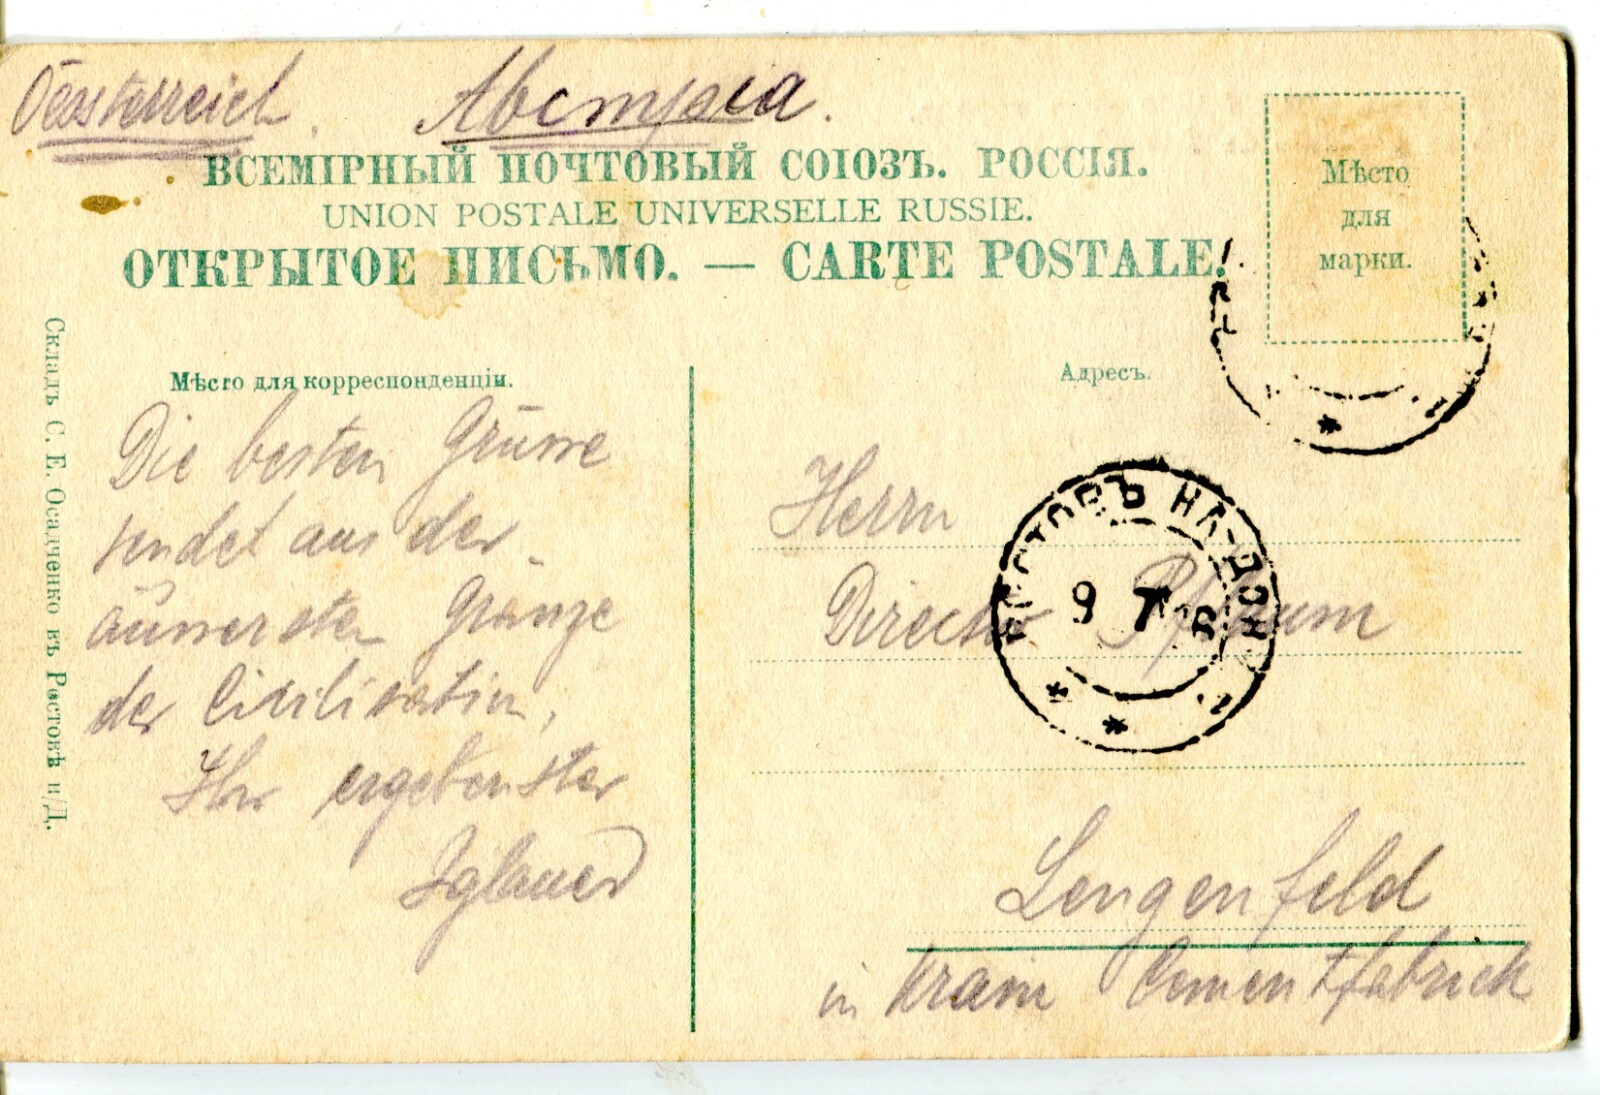 Oesterreich. Австрія.
ВСЕМІРНЫЙ ПОЧТОВЫЙ СОЮЗЪ. РОССІЯ.
UNION POSTALE UNIVERSELLE RUSSIE.
ОТКРЫТОЕ ПИСЬМО. — CARTE POSTALE.
Мѣсто
для
марки.
Складъ С. Е. Осадченко въ Ростовѣ н/Д.
Мѣсто для корреспонденціи.
Die besten Grüsse
sendet aus der
äussersten Gränze
der Civilisation,
Ihr ergebenster
Iglauer
Адресъ.
Herrn
Director
РОСТОВЪ НА-ДОНУ
9 7
Lengenfeld
in Krain Cementfabrick